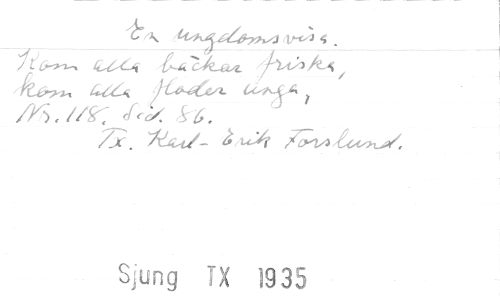 En ungdomsvisa.
Kom alla bäckar friska,
kom alla floder unga,
Nr. 118. Sid. 86.
Tx. Karl-Erik Forslund.
Sjung TX 1935